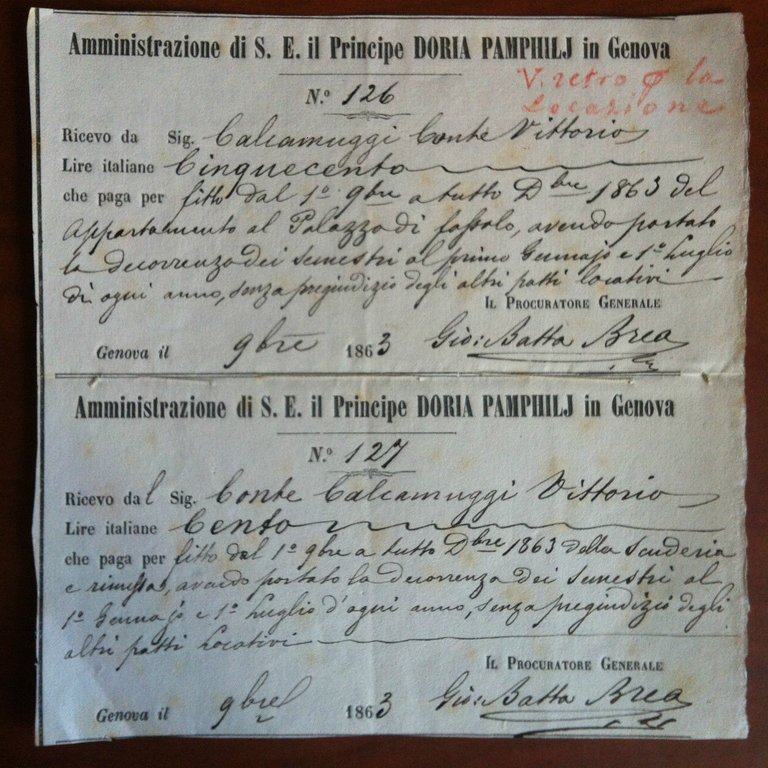 Amministrazione di S. E. il Principe DORIA PAMPHILJ in Genova
V. retro φ la
Locazione
N.º 126
Ricevo da Sig. Calcamuggi Conte Vittorio
Lire italiane Cinquecento
che paga per fitto dal 1º 9bre a tutto Dbre 1863 del
Appartamento al Palazzo di fassolo, avendo portato
la decorrenza dei semestri al primo Gennajo e 1º Luglio
di ogni anno, senza pregiudizio degli altri patti locativi
IL PROCURATORE GENERALE
Genova il 9bre 1863 Gio: Batta Brea
Amministrazione di S. E. il Principe DORIA PAMPHILJ in Genova
N.º 127
Ricevo dal Sig. Conte Calcamuggi Vittorio
Lire italiane Cento
che paga per fitto dal 1º 9bre a tutto Dbre 1863 della Scuderia
e rimessa, avendo portato la decorrenza dei semestri al
1º Gennajo e 1º Luglio d'ogni anno, senza pregiudizio degli
altri patti Locativi
IL PROCURATORE GENERALE
Genova il 9bre 1863 Gio: Batta Brea